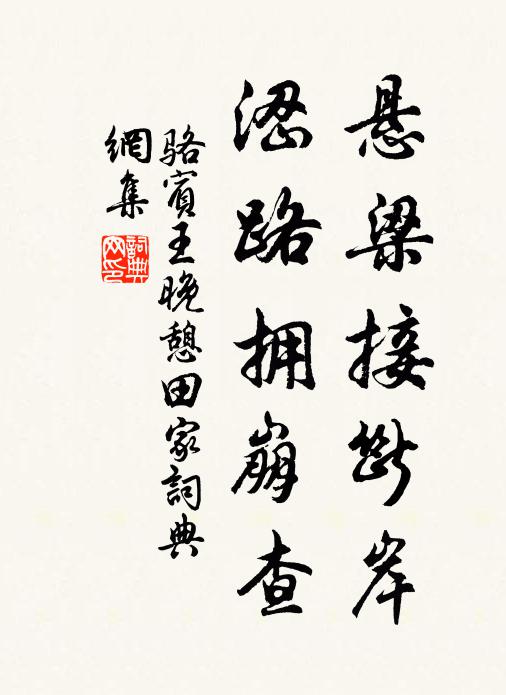 悬梁接断岸
涩路拥崩查
駱賓王晚憩田家詞典
網集
詞典
网印